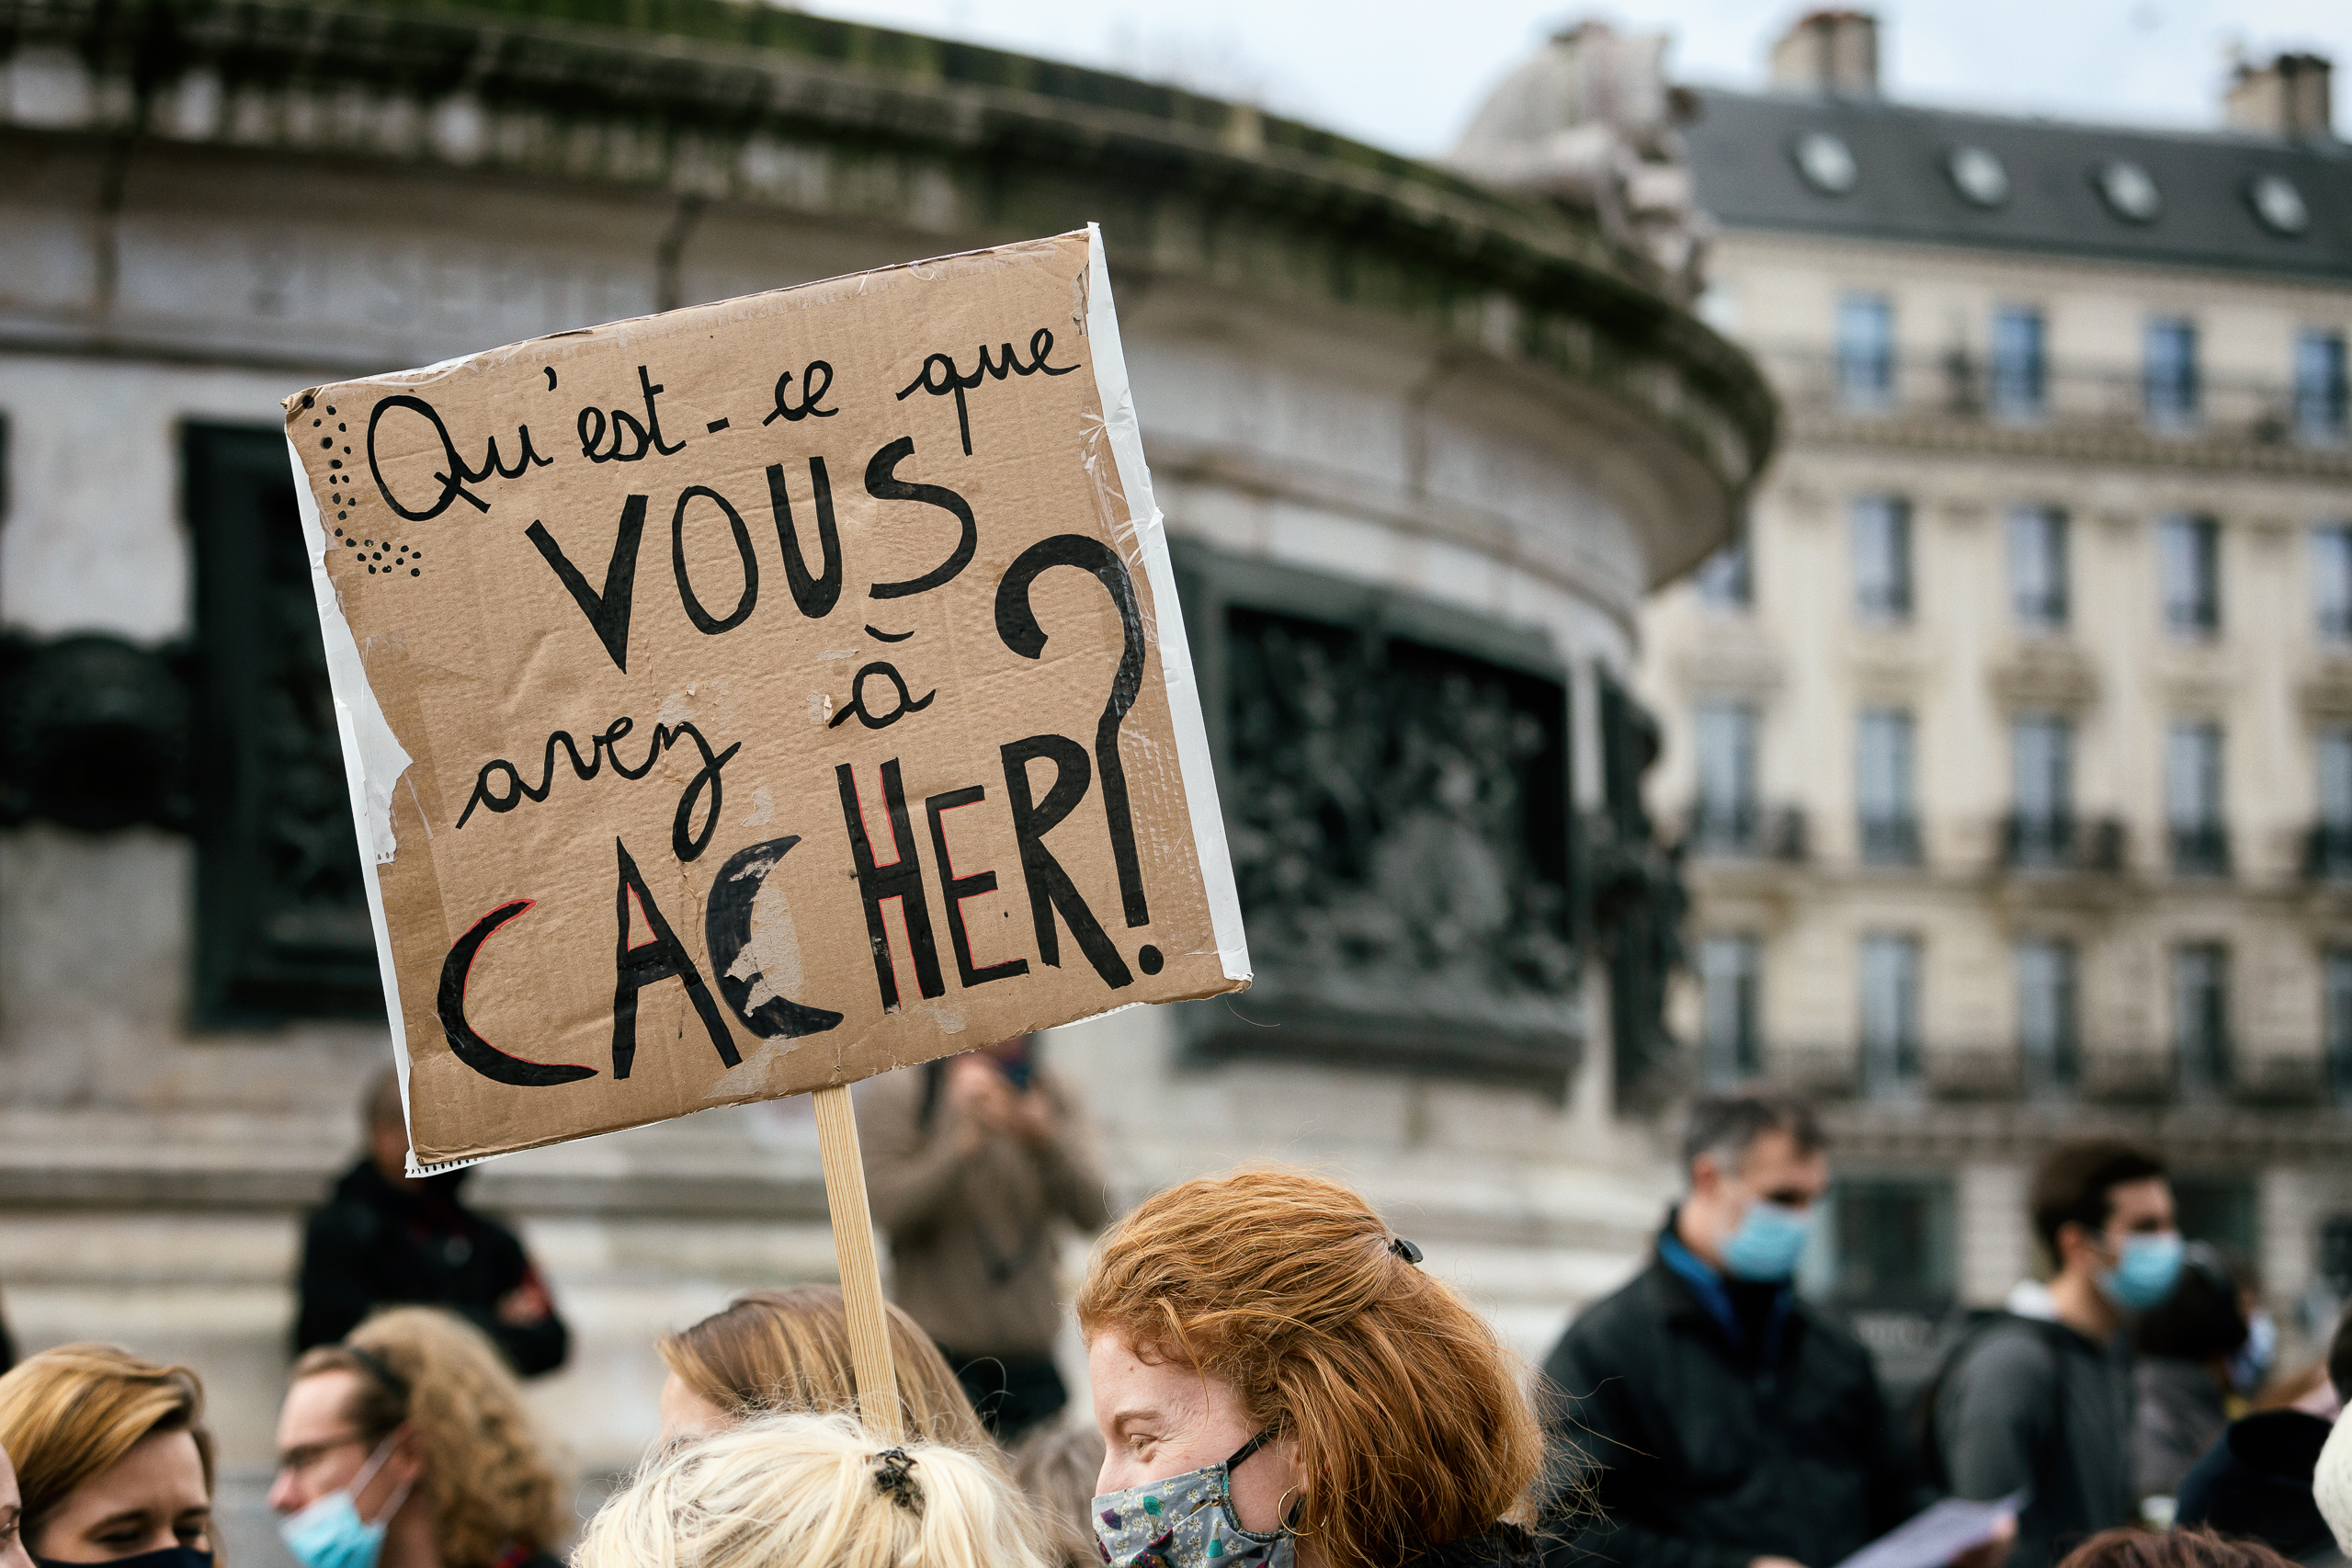 Qu'est-ce que
VOUS
avez à
CACHER?